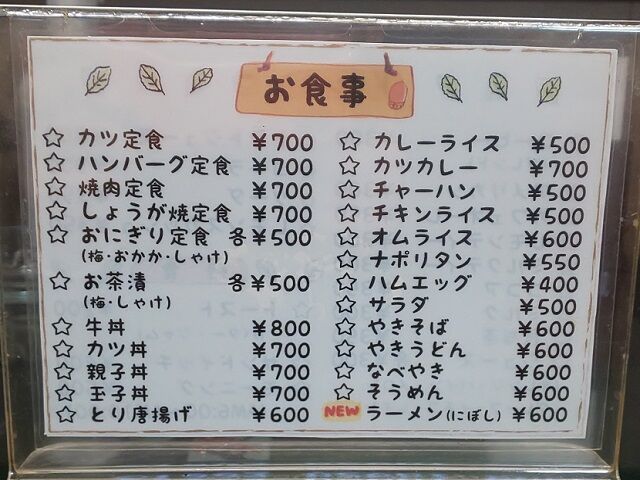 お食事
☆ カツ定食 ¥700
☆ ハンバーグ定食 ¥700
☆ 焼肉定食 ¥700
☆ しょうが焼定食 ¥700
☆ おにぎり定食 各¥500
(梅・おかか・しゃけ)
☆ お茶漬 各¥500
(梅・しゃけ)
☆ 牛丼 ¥800
☆ カツ丼 ¥700
☆ 親子丼 ¥700
☆ 玉子丼 ¥700
☆ とり唐揚げ ¥600
☆ カレーライス ¥500
☆ カツカレー ¥700
☆ チャーハン ¥500
☆ チキンライス ¥500
☆ オムライス ¥600
☆ ナポリタン ¥550
☆ ハムエッグ ¥400
☆ サラダ ¥500
☆ やきそば ¥600
☆ やきうどん ¥600
☆ なべやき ¥600
☆ そうめん ¥600
NEW ラーメン(にぼし) ¥600